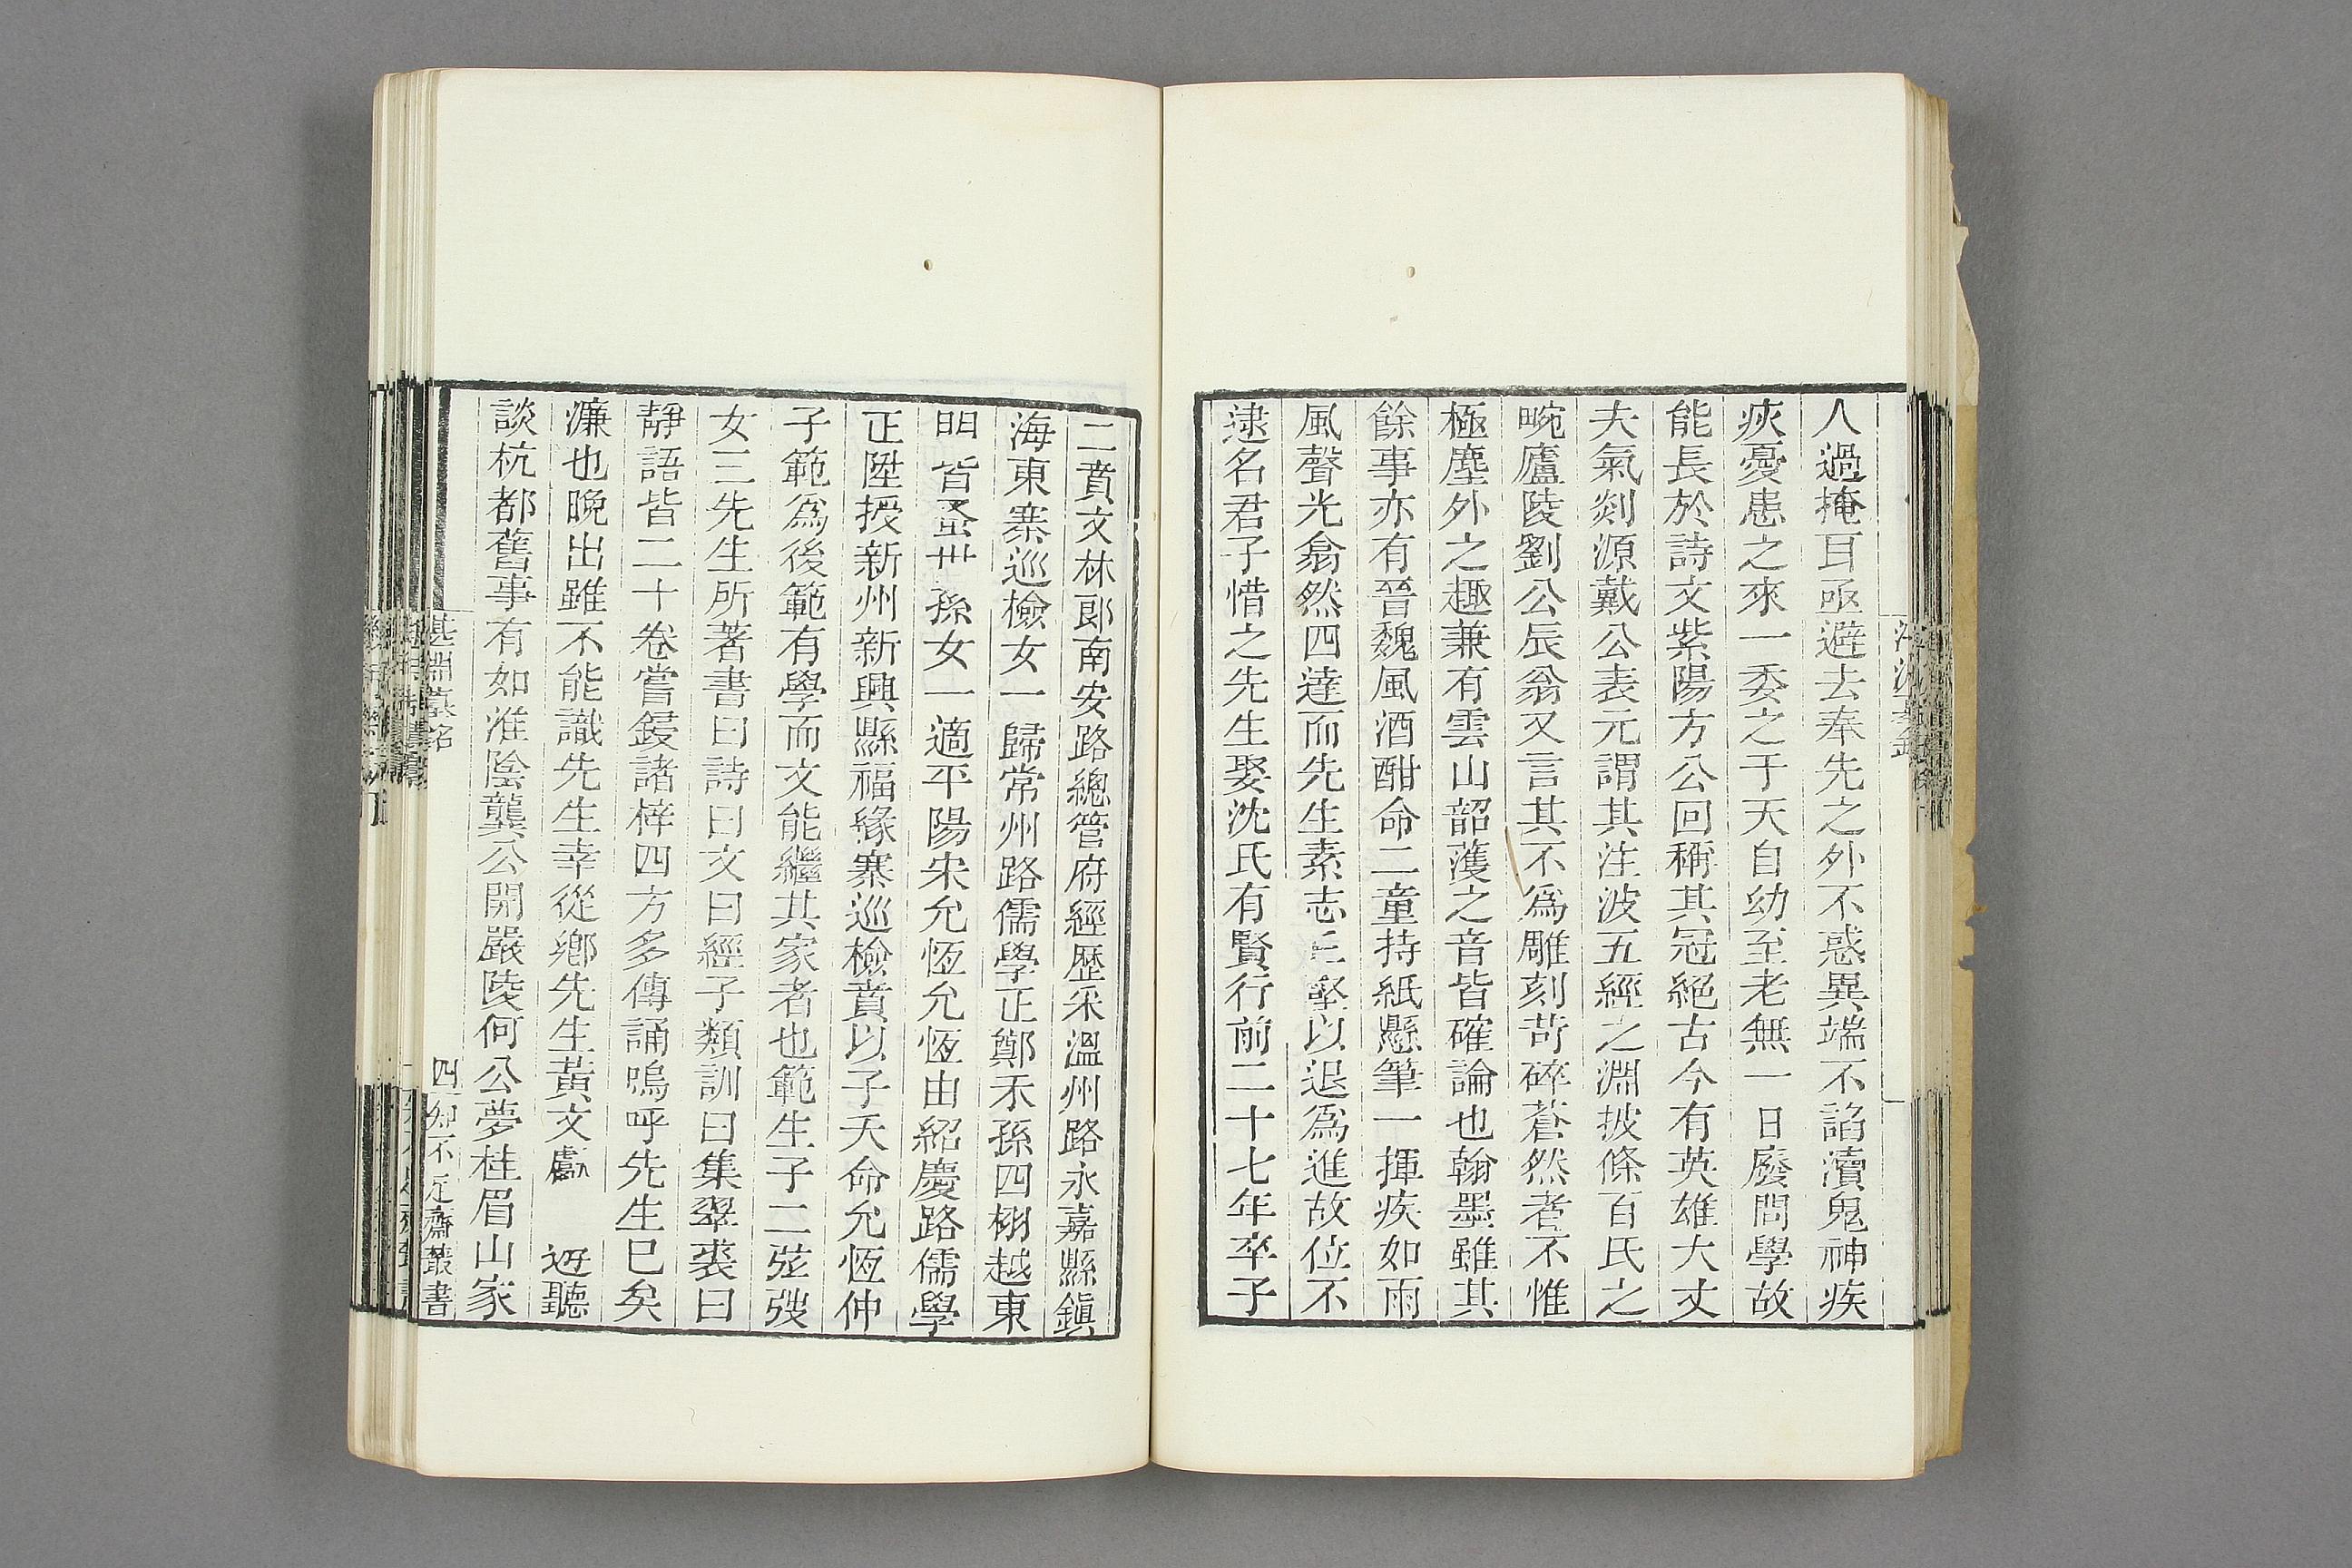 人過掩耳亟避去奉先之外不惑異端不諂瀆鬼神疾
疢憂患之來一委之于天自幼至老無一日廢問學故
能長於詩文紫陽方公回稱其冠絕古今有英雄大丈
夫氣剡源戴公表元謂其注波五經之淵披條百氏之
畹廬陵劉公辰翁又言其不爲雕刻苛碎蒼然者不惟
極塵外之趣兼有雲山韶濩之音皆確論也翰墨雖其
餘事亦有晉魏風酒酣命二童持紙懸筆一揮疾如雨
風聲光翕然四達而先生素志丘壑以退爲進故位不
逮名君子惜之先生娶沈氏有賢行前二十七年卒子
二賁文林郎南安路總管府經歷采溫州路永嘉縣鎮
海東寨巡檢女一歸常州路儒學正鄭禾孫四栩越東
明皆蚤世孫女一適平陽宋允恆允恆由紹慶路儒學
正陞授新州新興縣福緣寨巡檢賁以子夭命允恆仲
子範爲後範有學而文能繼其家者也範生子二弦弢
女三先生所著書曰詩曰文曰經子類訓曰集翠裘曰
靜語皆二十卷嘗鋟諸梓四方多傳誦嗚呼先生巳矣
濂也晚出雖不能識先生幸從鄉先生黃文獻 遊聽
談杭都舊事有如淮陰龔公開嚴陵何公夢桂眉山家
湛淵墓銘
四
知不足齋叢書